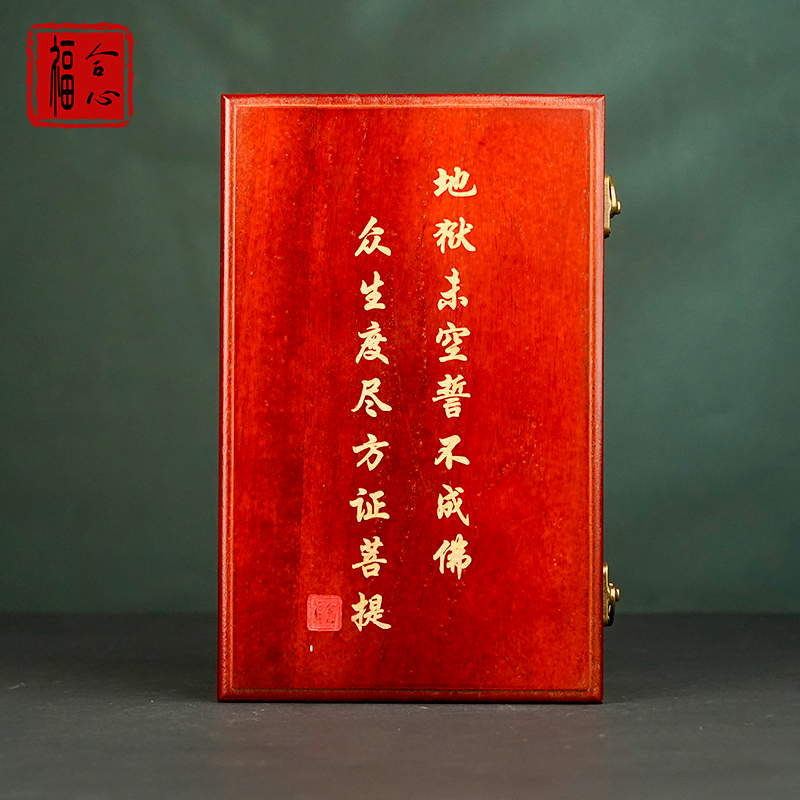 地狱未空誓不成佛
众生度尽方证菩提
福合心